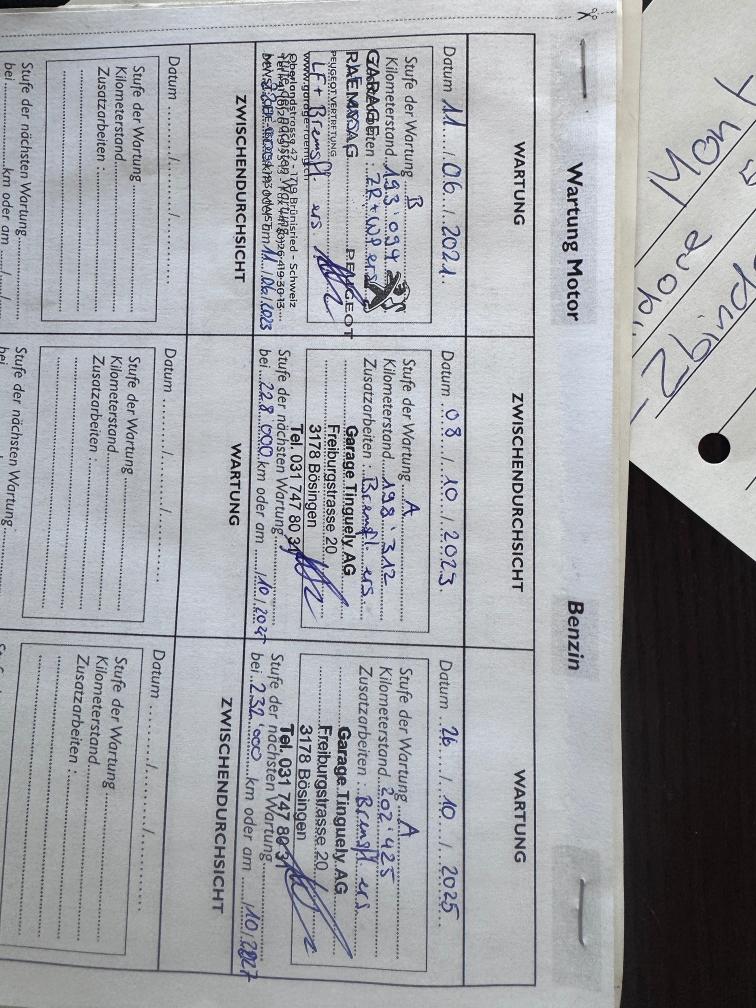 Wartung Motor
Benzin
WARTUNG
Datum 11 / 06 / 2021
Stufe der Wartung B
Kilometerstand 193'094
Zusatzarbeiten : ZR + WP ers
GARAGE
RAEMY AG
PEUGEOT
PEUGEOT-VERTRETUNG
LF + Bremsfl. ers.
www.garage-raemy.ch
Oberlandstrasse 45 - 1719 Brünisried - Schweiz
Stufe der nächsten Wartung
km oder am 11 / 06 / 2023
ZWISCHENDURCHSICHT
Datum 08 / 10 / 2023
Stufe der Wartung A
Kilometerstand 198'312
Zusatzarbeiten : Bremsfl. ers.
Garage Tinguely AG
Freiburgstrasse 20
3178 Bösingen
Tel. 031 747 80 31
Stufe der nächsten Wartung
bei 228'000 km oder am / 10 / 2025
WARTUNG
Datum 26 / 10 / 2025
Stufe der Wartung A
Kilometerstand 202'425
Zusatzarbeiten : Bremsfl. ers.
Garage Tinguely AG
Freiburgstrasse 20
3178 Bösingen
Tel. 031 747 80 31
Stufe der nächsten Wartung
bei 232'000 km oder am / 10 / 2027
ZWISCHENDURCHSICHT
Datum / /
Stufe der Wartung
Kilometerstand
Zusatzarbeiten :
Stufe der nächsten Wartung
bei km oder am / /
WARTUNG
Datum / /
Stufe der Wartung
Kilometerstand
Zusatzarbeiten :
Stufe der nächsten Wartung
bei
ZWISCHENDURCHSICHT
Datum / /
Stufe der Wartung
Kilometerstand
Zusatzarbeiten :
Mon